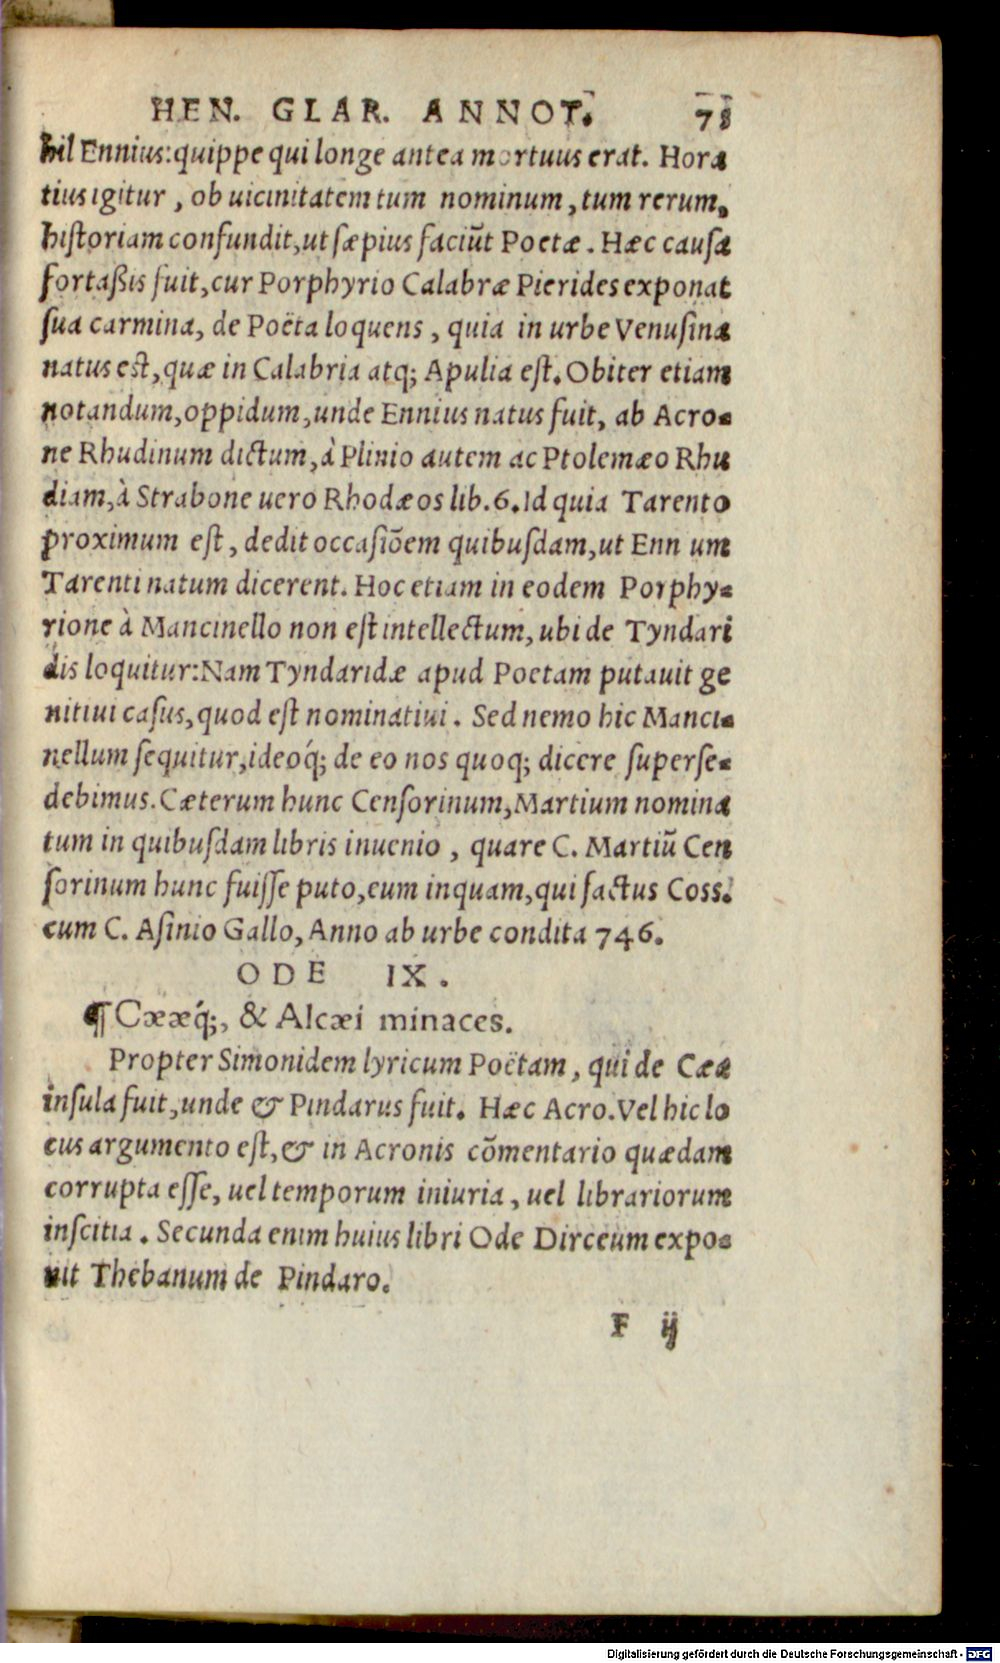 HEN. GLAR. ANNOT. 78
hil Ennius: quippe qui longe antea mortuus erat. Hora
tius igitur, ob uicinitatem tum nominum, tum rerum,
historiam confundit, ut sæpius faciūt Poetæ. Hæc causa
fortaßis fuit, cur Porphyrio Calabræ Pierides exponat
sua carmina, de Poëta loquens, quia in urbe Venusina
natus est, quæ in Calabria atq; Apulia est. Obiter etiam
notandum, oppidum, unde Ennius natus fuit, ab Acro-
ne Rhudinum dictum, à Plinio autem ac Ptolemæo Rhu
diam, à Strabone uero Rhodæos lib. 6. Id quia Tarento
proximum est, dedit occasiōem quibusdam, ut Enn um
Tarenti natum dicerent. Hoc etiam in eodem Porphy-
rione à Mancinello non est intellectum, ubi de Tyndari
dis loquitur: Nam Tyndaridæ apud Poetam putauit ge
nitiui casus, quod est nominatiui. Sed nemo hic Manci-
nellum sequitur, ideoq́; de eo nos quoq; dicere superse-
debimus. Cæterum hunc Censorinum, Martium nomina
tum in quibusdam libris inuenio, quare C. Martiū Cen
sorinum hunc fuisse puto, eum inquam, qui factus Coss.
cum C. Asinio Gallo, Anno ab urbe condita 746.
ODE IX.
¶ Cææq́;, & Alcæi minaces.
Propter Simonidem lyricum Poëtam, qui de Cæa
insula fuit, unde & Pindarus fuit. Hæc Acro. Vel hic lo
cus argumento est, & in Acronis cōmentario quædam
corrupta esse, uel temporum iniuria, uel librariorum
inscitia. Secunda enim huius libri Ode Dirceum expo-
uit Thebanum de Pindaro.
F ij
Digitalisierung gefördert durch die Deutsche Forschungsgemeinschaft - DFG